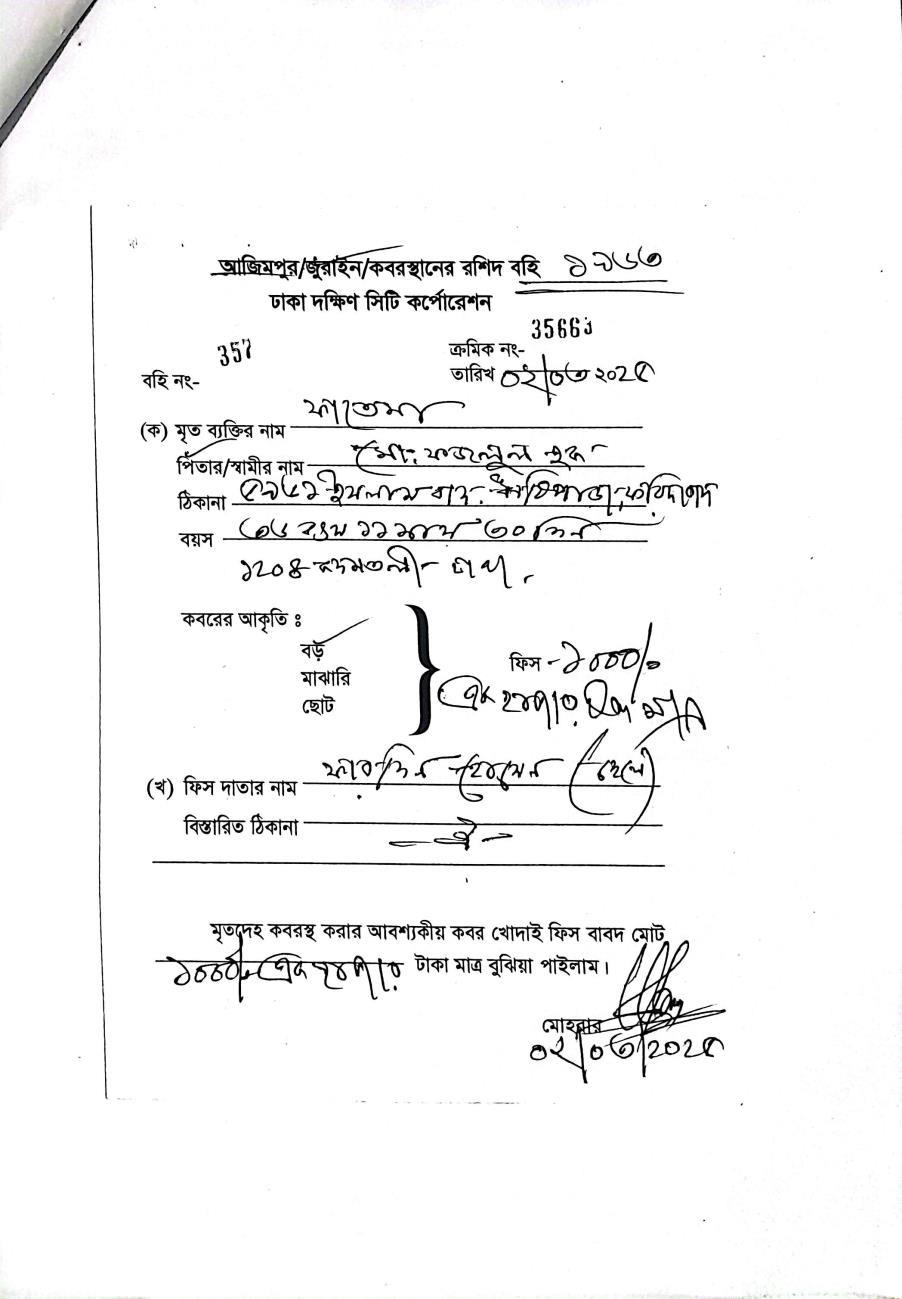 আজিমপুর/জুরাইন/কবরস্থানের রশিদ বহি ১৭৬৩
ঢাকা দক্ষিণ সিটি কর্পোরেশন
357
ক্রমিক নং- 35663
বহি নং-
তারিখ ০২/০৩/২০২৫
(ক) মৃত ব্যক্তির নাম ফাতেমা
পিতার/স্বামীর নাম মো: ফজলুল হক
ঠিকানা ইসলাম বাদ
বয়স বৎসর ১১ মাস ৩০ দিন
১২০৪ কদমতলী - ঢাকা
কবরের আকৃতি ঃ
বড়
মাঝারি
ছোট
ফিস - ১০০০/-
এক হাজার টাকা মাত্র
(খ) ফিস দাতার নাম হোসেন (ছেলে)
বিস্তারিত ঠিকানা
- ঐ -
মৃতদেহ কবরস্থ করার আবশ্যকীয় কবর খোদাই ফিস বাবদ মোট
১০০০/- এক হাজার টাকা মাত্র বুঝিয়া পাইলাম।
মোহরার
০২/০৩/২০২৫